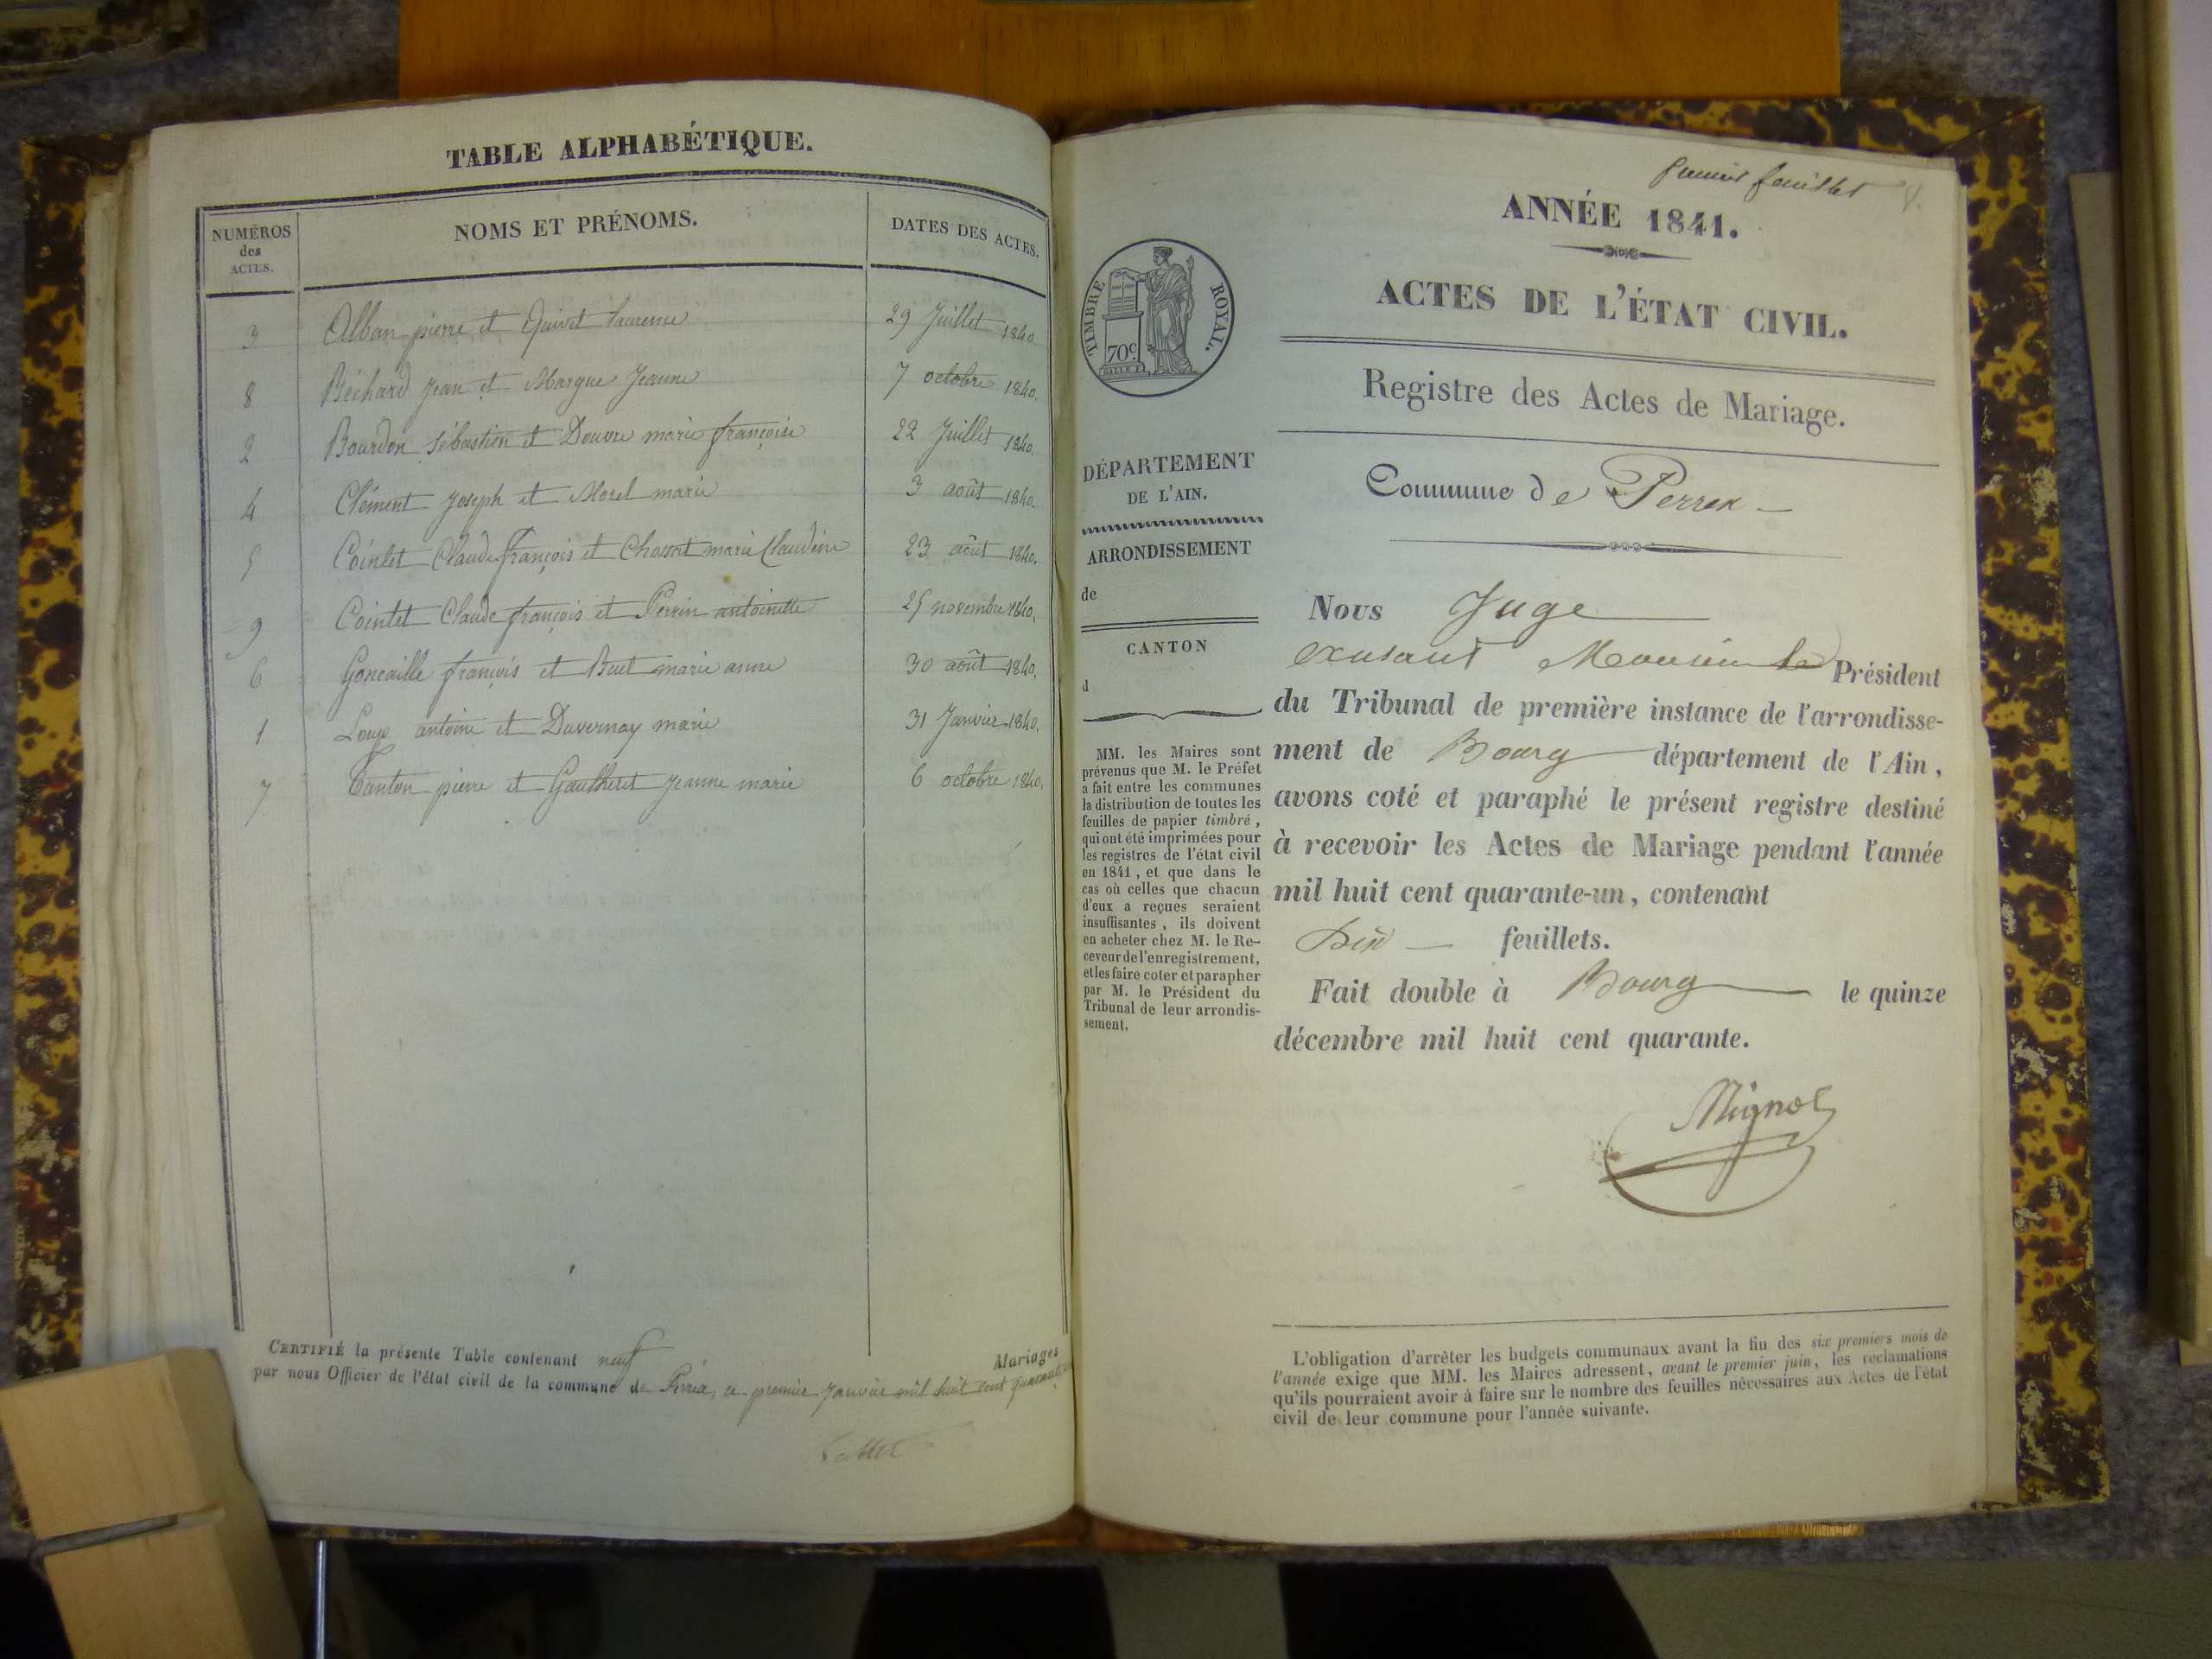 TABLE ALPHABÉTIQUE.
NUMÉROS des ACTES.
NOMS ET PRÉNOMS.
DATES DES ACTES.
3 Alban pierre et Quivet laurence 29 Juillet 1840.
8 Béchard Jean et Margue Jeanne 7 octobre 1840.
2 Bourdon Sébastien et Douvre marie françoise 22 Juillet 1840.
4 Clément Joseph et Morel marie 3 août 1840.
5 Cointet Claude françois et marie Claudine 23 août 1840.
9 Cointet Claude françois et Perrin antoinette 25 novembre 1840.
6 françois et Buet marie anne 30 août 1840.
1 antoine et Duvernay marie 31 Janvier 1840.
7 Tanton pierre et Jeanne marie 6 octobre 1840.
CERTIFIÉ la présente Table contenant neuf Mariages
par nous Officier de l'état civil de la commune de Perrex, ce premier Janvier mil huit cent
premier feuillet
ANNÉE 1841.
ACTES DE L'ÉTAT CIVIL.
Registre des Actes de Mariage.
Commune de Perrex
TIMBRE ROYAL.
70c.
DÉPARTEMENT
DE L'AIN.
ARRONDISSEMENT
de
CANTON
d
MM. les Maires sont
prévenus que M. le Préfet
a fait entre les communes
la distribution de toutes les
feuilles de papier timbré,
qui ont été imprimées pour
les registres de l'état civil
en 1841, et que dans le
cas où celles que chacun
d'eux a reçues seraient
insuffisantes, ils doivent
en acheter chez M. le Re-
ceveur de l'enregistrement,
et les faire coter et parapher
par M. le Président du
Tribunal de leur arrondis-
sement.
Nous Juge
Monsieur le Président
du Tribunal de première instance de l'arrondisse-
ment de Bourg département de l'Ain,
avons coté et paraphé le présent registre destiné
à recevoir les Actes de Mariage pendant l'année
mil huit cent quarante-un, contenant
feuillets.
Fait double à Bourg le quinze
décembre mil huit cent quarante.
Mignot
L'obligation d'arrêter les budgets communaux avant la fin des six premiers mois de
l'année exige que MM. les Maires adressent, avant le premier juin, les réclamations
qu'ils pourraient avoir à faire sur le nombre des feuilles nécessaires aux Actes de l'état
civil de leur commune pour l'année suivante.